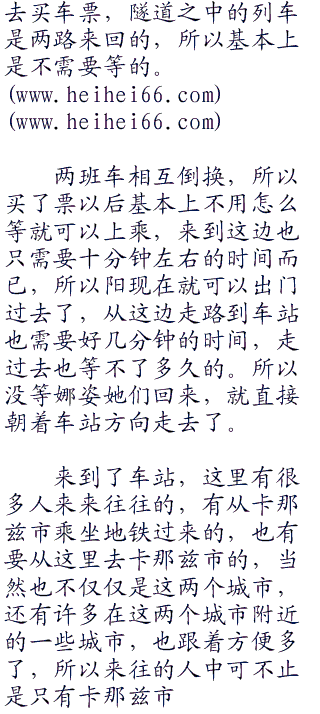 去买车票，隧道之中的列车
是两路来回的，所以基本上
是不需要等的。
(www.heihei66.com)
(www.heihei66.com)
两班车相互倒换，所以
买了票以后基本上不用怎么
等就可以上乘，来到这边也
只需要十分钟左右的时间而
已，所以阳现在就可以出门
过去了，从这边走路到车站
也需要好几分钟的时间，走
过去也等不了多久的。所以
没等娜姿她们回来，就直接
朝着车站方向走去了。
来到了车站，这里有很
多人来来往往的，有从卡那
兹市乘坐地铁过来的，也有
要从这里去卡那兹市的，当
然也不仅仅是这两个城市，
还有许多在这两个城市附近
的一些城市，也跟着方便多
了，所以来往的人中可不止
是只有卡那兹市